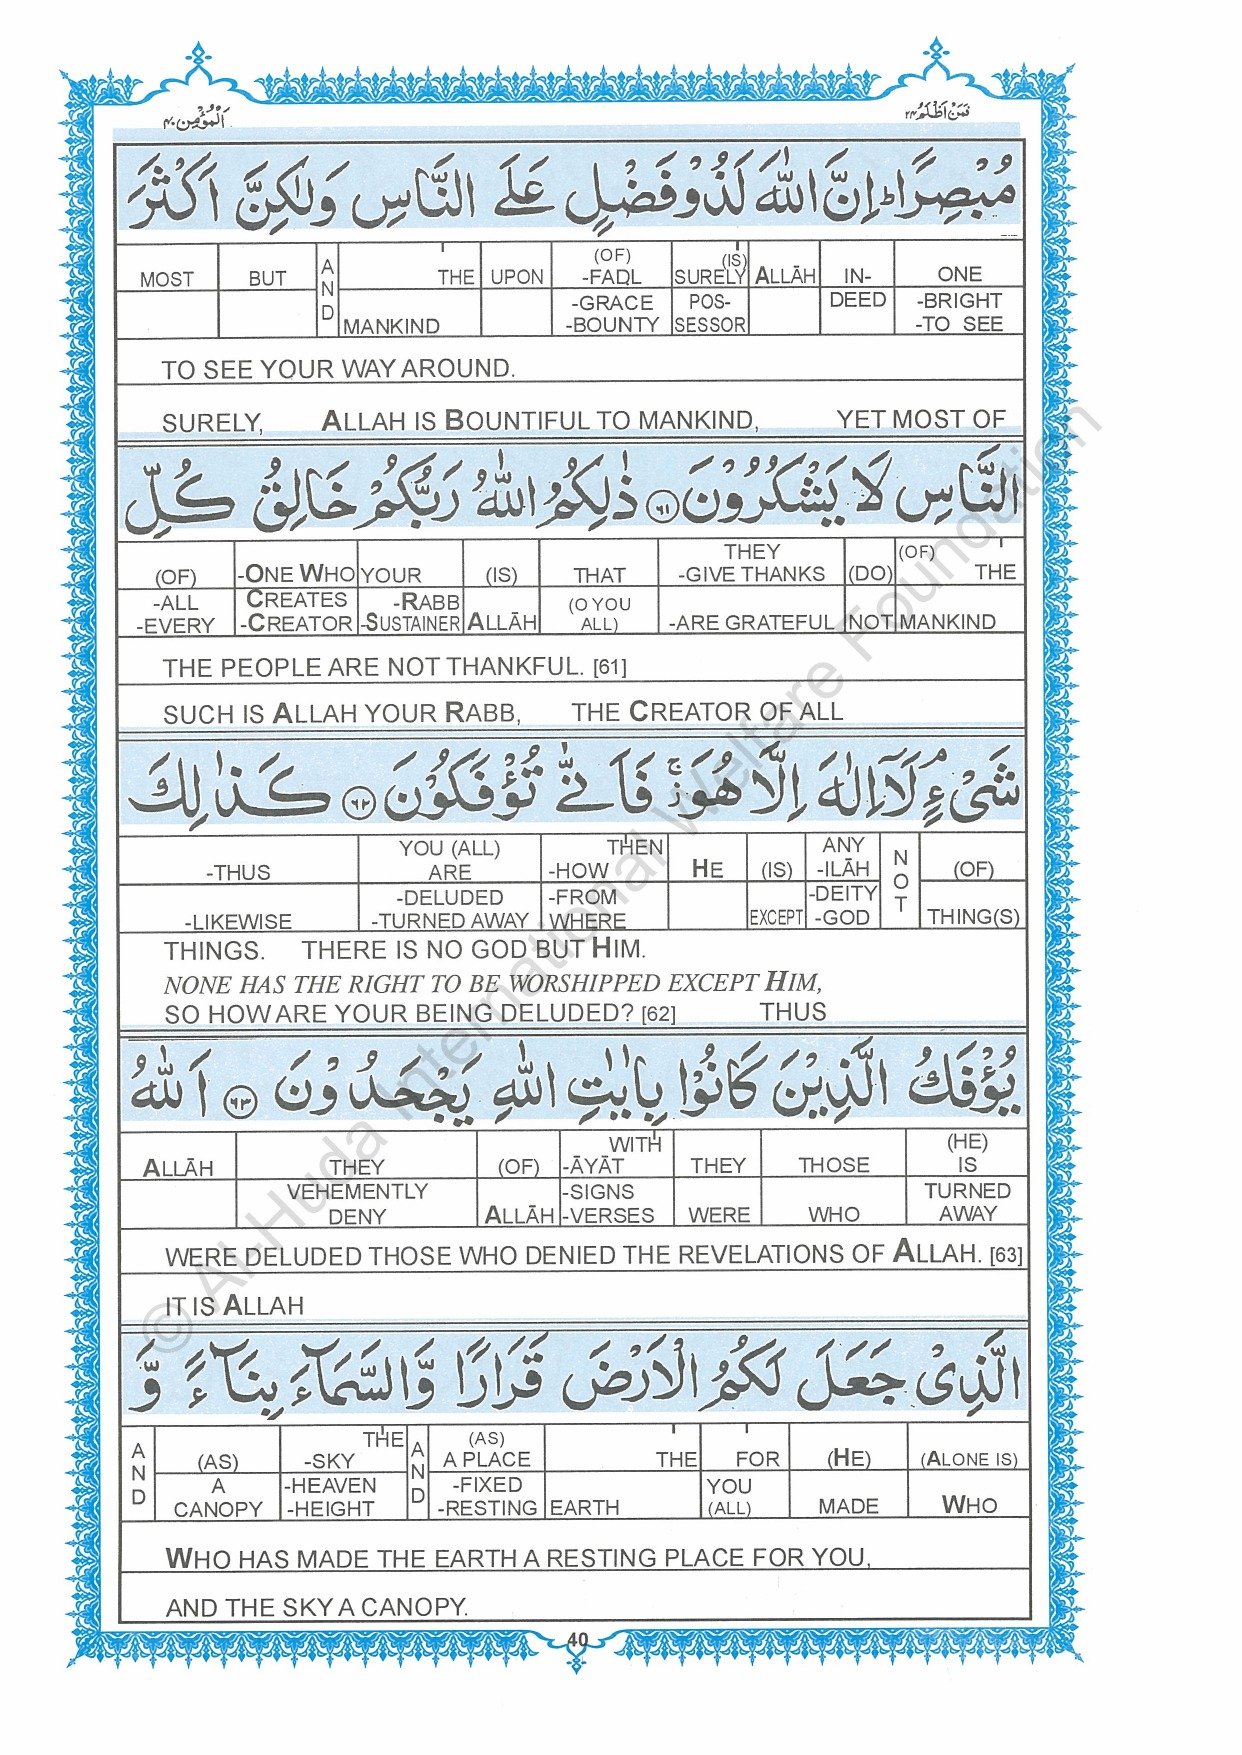 اَلْمُؤْمِن ۴۰
فَمَنْ اَظْلَمُ ۲۴
مُبْصِرًا ؕ اِنَّ اللّٰهَ لَذُوْ فَضْلٍ عَلَى النَّاسِ وَلٰكِنَّ اَكْثَرَ
MOST BUT AND THE UPON (OF) -FAḌL (IS) SURELY ALLĀH IN- ONE
MANKIND -GRACE -BOUNTY POS- SESSOR DEED -BRIGHT -TO SEE
TO SEE YOUR WAY AROUND.
SURELY, ALLAH IS BOUNTIFUL TO MANKIND, YET MOST OF
النَّاسِ لَا يَشْكُرُوْنَ ﴿۶۱﴾ ذٰلِكُمُ اللّٰهُ رَبُّكُمْ خَالِقُ كُلِّ
(OF) -ONE WHO YOUR (IS) THAT THEY -GIVE THANKS (DO) (OF) THE
-ALL -EVERY CREATES -CREATOR -RABB -SUSTAINER ALLĀH (O YOU ALL) -ARE GRATEFUL NOT MANKIND
THE PEOPLE ARE NOT THANKFUL. [61]
SUCH IS ALLAH YOUR RABB, THE CREATOR OF ALL
شَىْءٍ ۘ لَاۤ اِلٰهَ اِلَّا هُوَ ۚ فَاَنّٰى تُؤْفَكُوْنَ ﴿۶۲﴾ كَذٰلِكَ
-THUS YOU (ALL) ARE THEN -HOW HE (IS) ANY -ILĀH NOT (OF)
-LIKEWISE -DELUDED -TURNED AWAY -FROM WHERE EXCEPT -DEITY -GOD THING(S)
THINGS. THERE IS NO GOD BUT HIM.
NONE HAS THE RIGHT TO BE WORSHIPPED EXCEPT HIM,
SO HOW ARE YOUR BEING DELUDED? [62] THUS
يُؤْفَكُ الَّذِيْنَ كَانُوْا بِاٰيٰتِ اللّٰهِ يَجْحَدُوْنَ ﴿۶۳﴾ اَللّٰهُ
ALLĀH THEY (OF) WITH -ĀYĀT THEY THOSE (HE) IS
VEHEMENTLY DENY ALLĀH -SIGNS -VERSES WERE WHO TURNED AWAY
WERE DELUDED THOSE WHO DENIED THE REVELATIONS OF ALLAH. [63]
IT IS ALLAH
الَّذِىْ جَعَلَ لَكُمُ الْاَرْضَ قَرَارًا وَّالسَّمَآءَ بِنَآءً وَّ
AND (AS) THE -SKY AND (AS) A PLACE THE FOR (HE) (ALONE IS)
A CANOPY -HEAVEN -HEIGHT -FIXED -RESTING EARTH YOU (ALL) MADE WHO
WHO HAS MADE THE EARTH A RESTING PLACE FOR YOU,
AND THE SKY A CANOPY.
40
© Al-Huda International Welfare Foundation